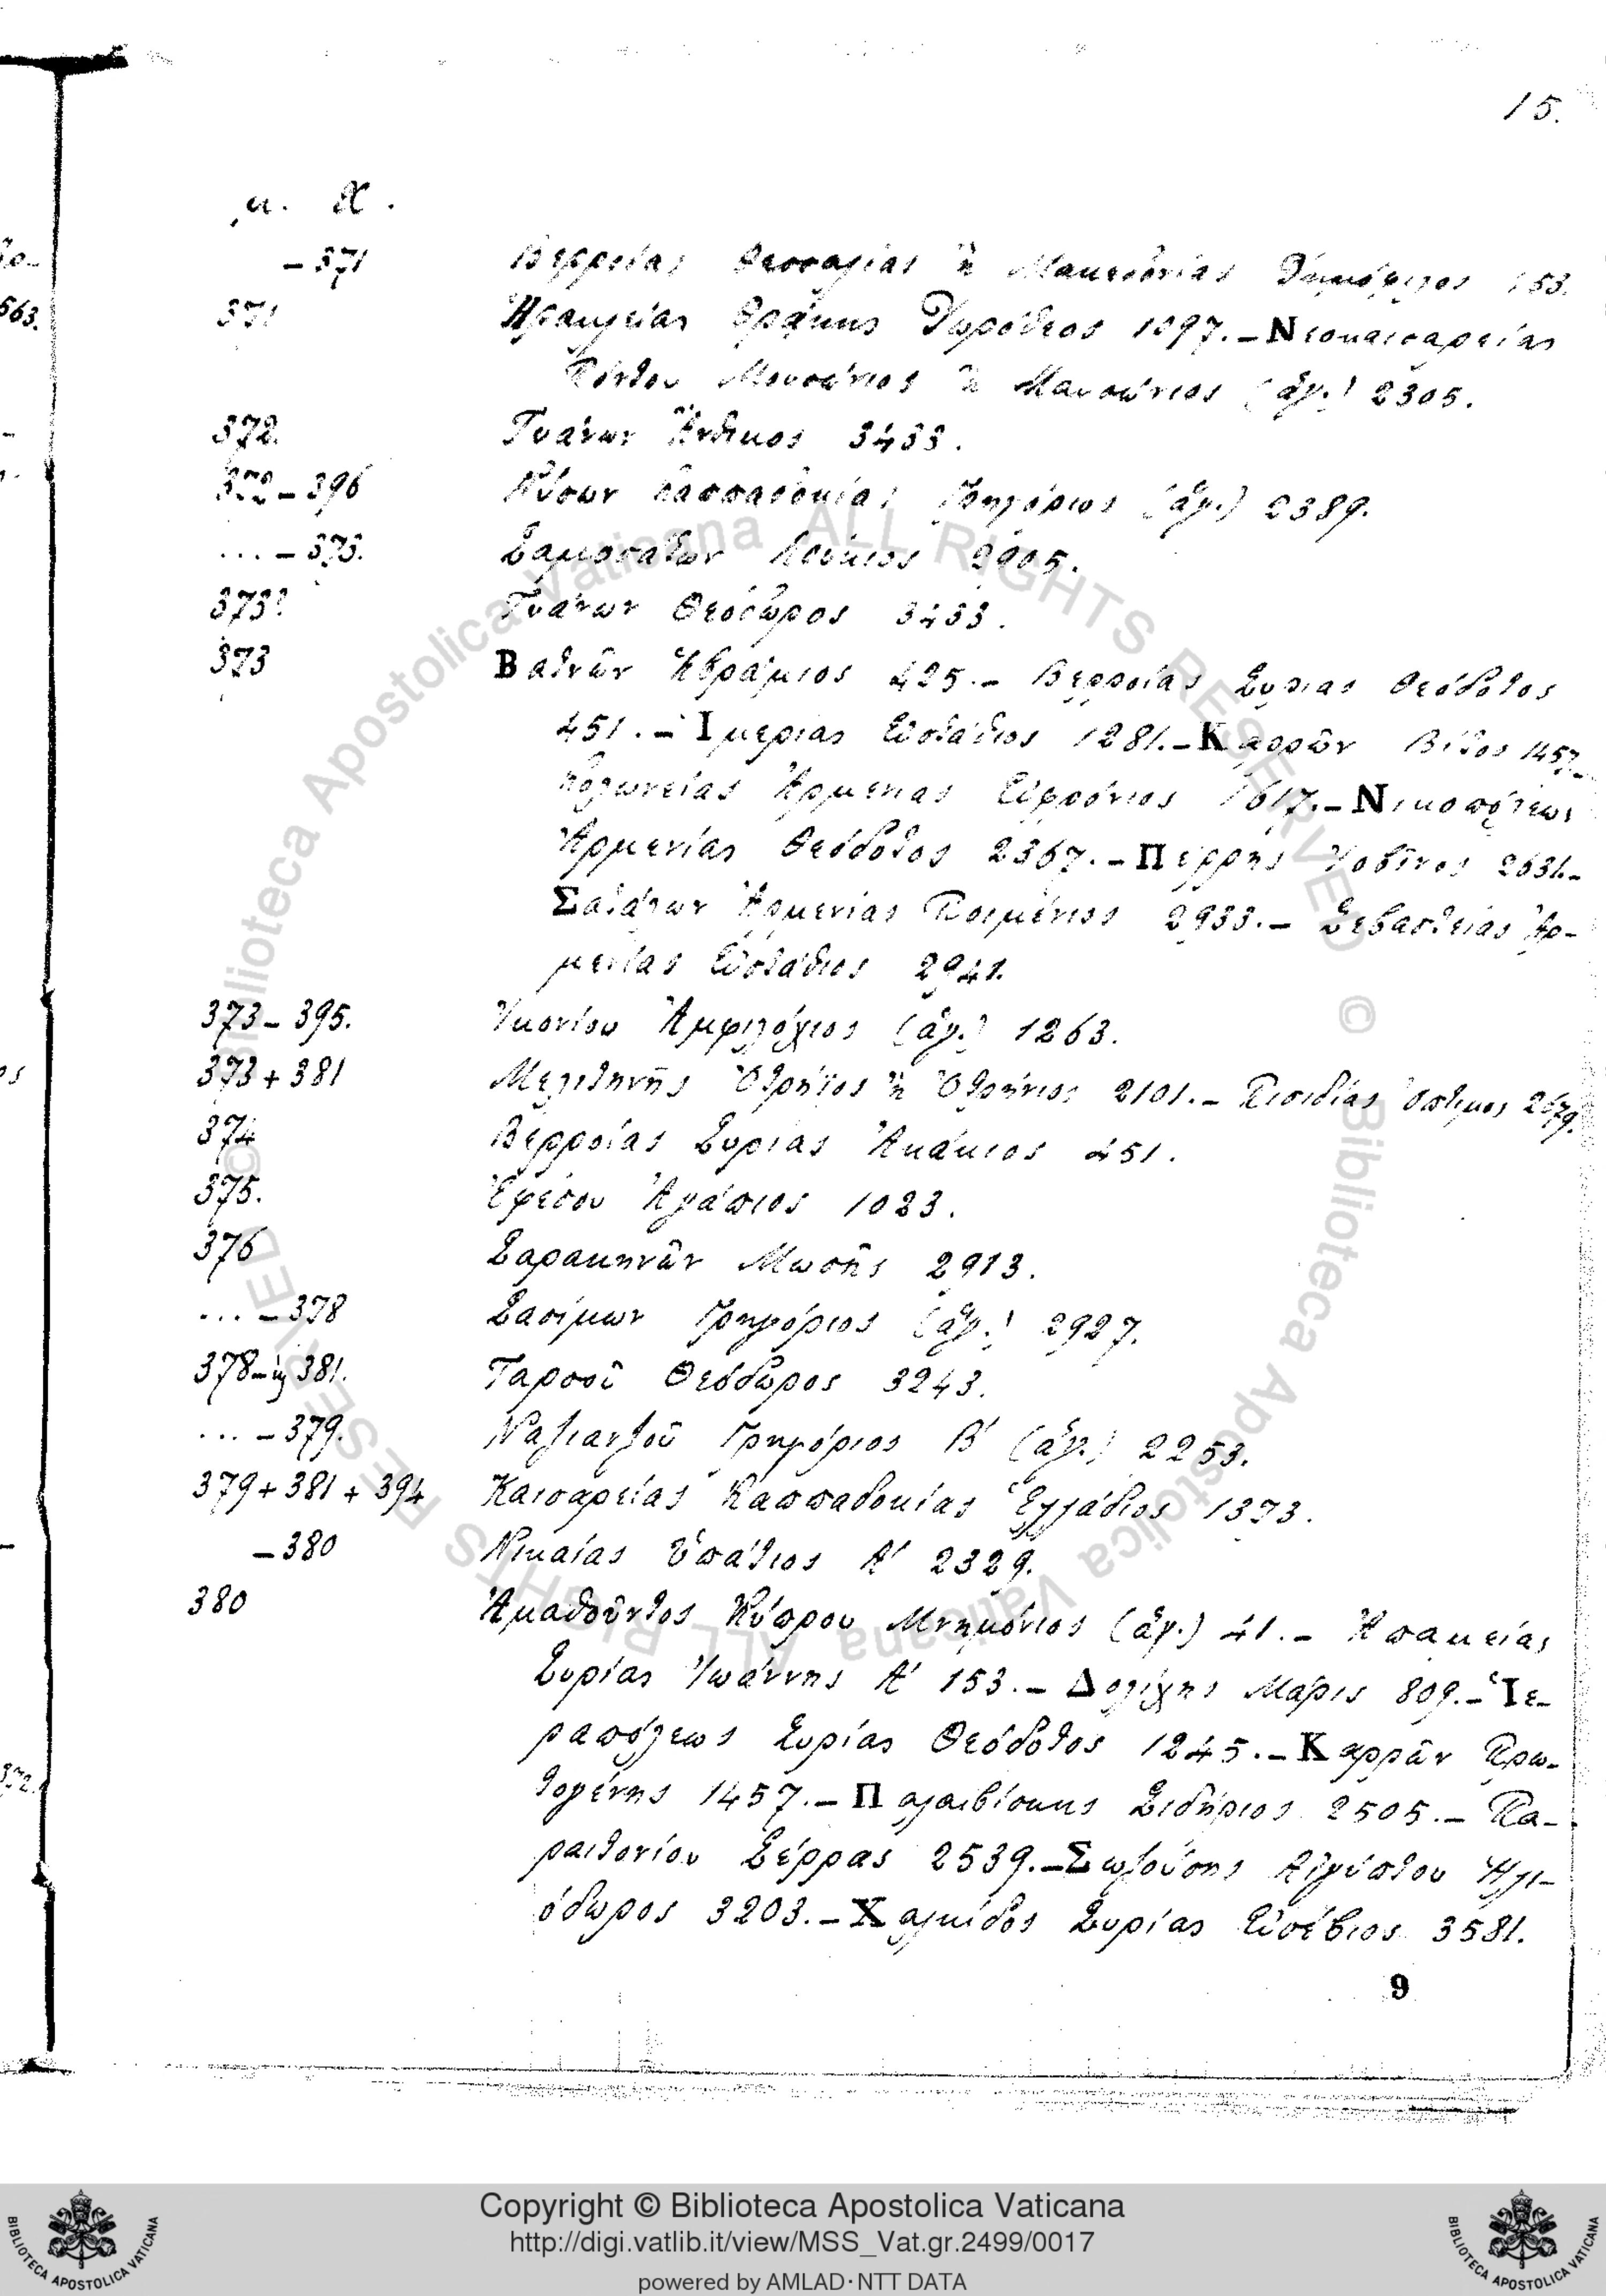 15.
μ. Χ.
-371 Βερροίας Θεσσαλίας ἢ Μακεδονίας Δημόφιλος 453.
371 Ἡρακλείας Θρᾴκης Δωρόθεος 1097.-Νεοκαισαρείας
Πόντου Μουσώνιος ἢ Μαυσώνιος (ἅγ.) 2305.
372. Τυάνων Ἄνθιμος 3433.
372-396 Νύσσων Καππαδοκίας Γρηγόριος (ἅγ.) 2389.
...-373. Σαμοσάτων Λούκιος 2905.
373? Τυάνων Θεόδωρος 3433.
373 Βατνῶν Ἀβράμιος 425.- Βερροίας Συρίας Θεόδοτος
451.-Ἰμερίας Εὐστάθιος 1281.-Καρρῶν Βίτος 1457.-
Κολωνείας Ἀρμενίας Εὐφρόνιος 1617.-Νικοπόλεως
Ἀρμενίας Θεόδοτος 2367.-Πέρρης Ἰοβῖνος 2631.-
Σατάλων Ἀρμενίας Ποιμένιος 2933.- Σεβαστείας Ἀρ-
μενίας Εὐστάθιος 2941.
373-395. Ἰκονίου Ἀμφιλόχιος (ἅγ.) 1263.
373+381 Μελιτηνῆς Ὀτρήϊος ἢ Ὀτρήνιος 2101.- Πισιδίας Ὄπτιμος 2679.
374 Βερροίας Συρίας Ἀκάκιος 451.
375. Ἐφέσου Ἀγάπιος 1023.
376 Σαρακηνῶν Μωσῆς 2913.
...-378 Σασίμων Γρηγόριος (ἅγ.) 2927.
378-ϗ 381. Ταρσοῦ Θεόδωρος 3243.
...-379. Ναζιανζοῦ Γρηγόριος Β′ (ἅγ.) 2253.
379+381+394 Καισαρείας Καππαδοκίας Ἑλλάδιος 1373.
-380 Νικαίας Ὑπάτιος Α′ 2329.
380 Ἀμαθοῦντος Κύπρου Μνημόνιος (ἅγ.) 41.- Ἀπαμείας
Συρίας Ἰωάννης Α′ 153.-Δολίχης Μάρις 809.-Ἱε-
ραπόλεως Συρίας Θεόδοτος 1245.-Καρρῶν Πρω-
τογένης 1457.-Παλαιβίσκης Σιδήριος 2505.-Πα-
ραιτονίου Σέρρας 2539.-Σωζούσης Αἰγύπτου Ἡλι-
όδωρος 3203.-Χαλκίδος Συρίας Εὐσέβιος 3581.
9
Copyright © Biblioteca Apostolica Vaticana
http://digi.vatlib.it/view/MSS_Vat.gr.2499/0017
powered by AMLAD·NTT DATA